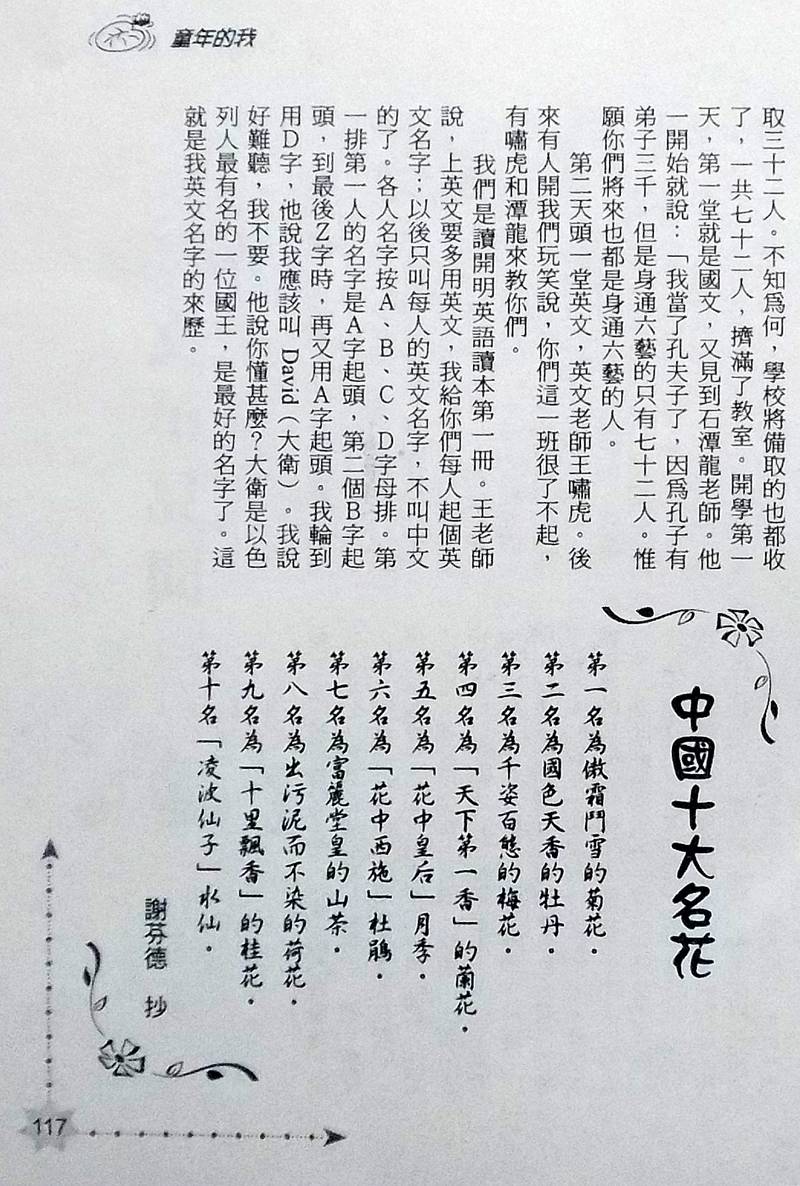 童年的我
取三十二人。不知爲何，學校將備取的也都收
了，一共七十二人，擠滿了教室。開學第一
天，第一堂就是國文，又見到石潭龍老師。他
一開始就說：「我當了孔夫子了，因爲孔子有
弟子三千，但是身通六藝的只有七十二人。惟
願你們將來也都是身通六藝的人。
第二天頭一堂英文，英文老師王嘯虎。後
來有人開我們玩笑說，你們這一班很了不起，
有嘯虎和潭龍來教你們。
我們是讀開明英語讀本第一冊。王老師
說，上英文要多用英文，我給你們每人起個英
文名字；以後只叫每人的英文名字，不叫中文
的了。各人名字按A、B、C、D字母排。第
一排第一人的名字是A字起頭，第二個B字起
頭，到最後Z字時，再又用A字起頭。我輪到
用D字，他說我應該叫 David（大衛）。我說
好難聽，我不要。他說你懂甚麼？大衛是以色
列人最有名的一位國王，是最好的名字了。這
就是我英文名字的來歷。
中國十大名花
第一名為傲霜鬥雪的菊花。
第二名為國色天香的牡丹。
第三名為千姿百態的梅花。
第四名為「天下第一香」的蘭花。
第五名為「花中皇后」月季。
第六名為「花中西施」杜鵑。
第七名為富麗堂皇的山茶。
第八名為出污泥而不染的荷花。
第九名為「十里飄香」的桂花。
第十名「凌波仙子」水仙。
謝芬德 抄
117